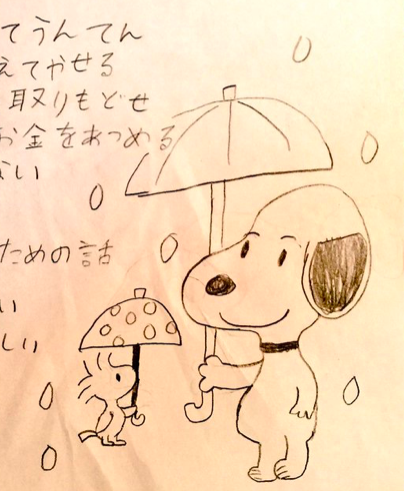 てうんてん
えてやせる
取りもどせ
お金をあつめる
ない
ための話
い
しい